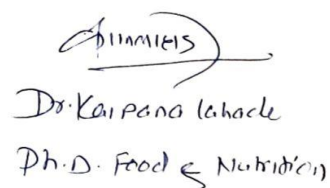 Dr. Kalpana Lahade
Ph.D. Food & Nutrition